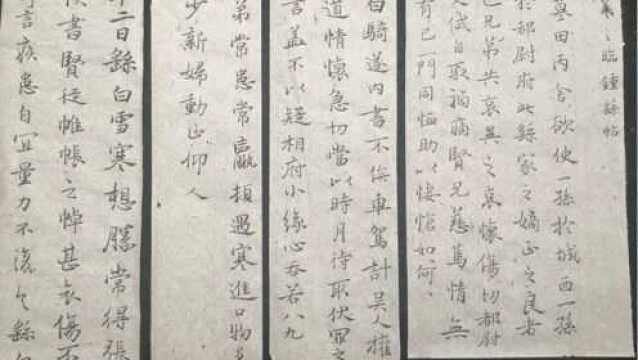 羲之临钟繇帖
墓田丙舍欲使一孫於城西一孫
於都尉府此繇家之嫡正之良者
也兄弟共哀異之哀懷傷切都尉
文岱自取禍痛賢兄慈篤情無
有已一門同恤助以悽愴如何
白騎遂内書不俟車駕計吴人權
道情懷急切當以時月待取伏罪之
言蓋不以疑相府小緣心吞若八九
弟常患常羸頓遇寒進口物多
少新婦動止仰人
二日繇白雪寒想勝常得張
侯書賢從帷帳之悼甚哀傷不
可言疾患自宜量力不復繇白